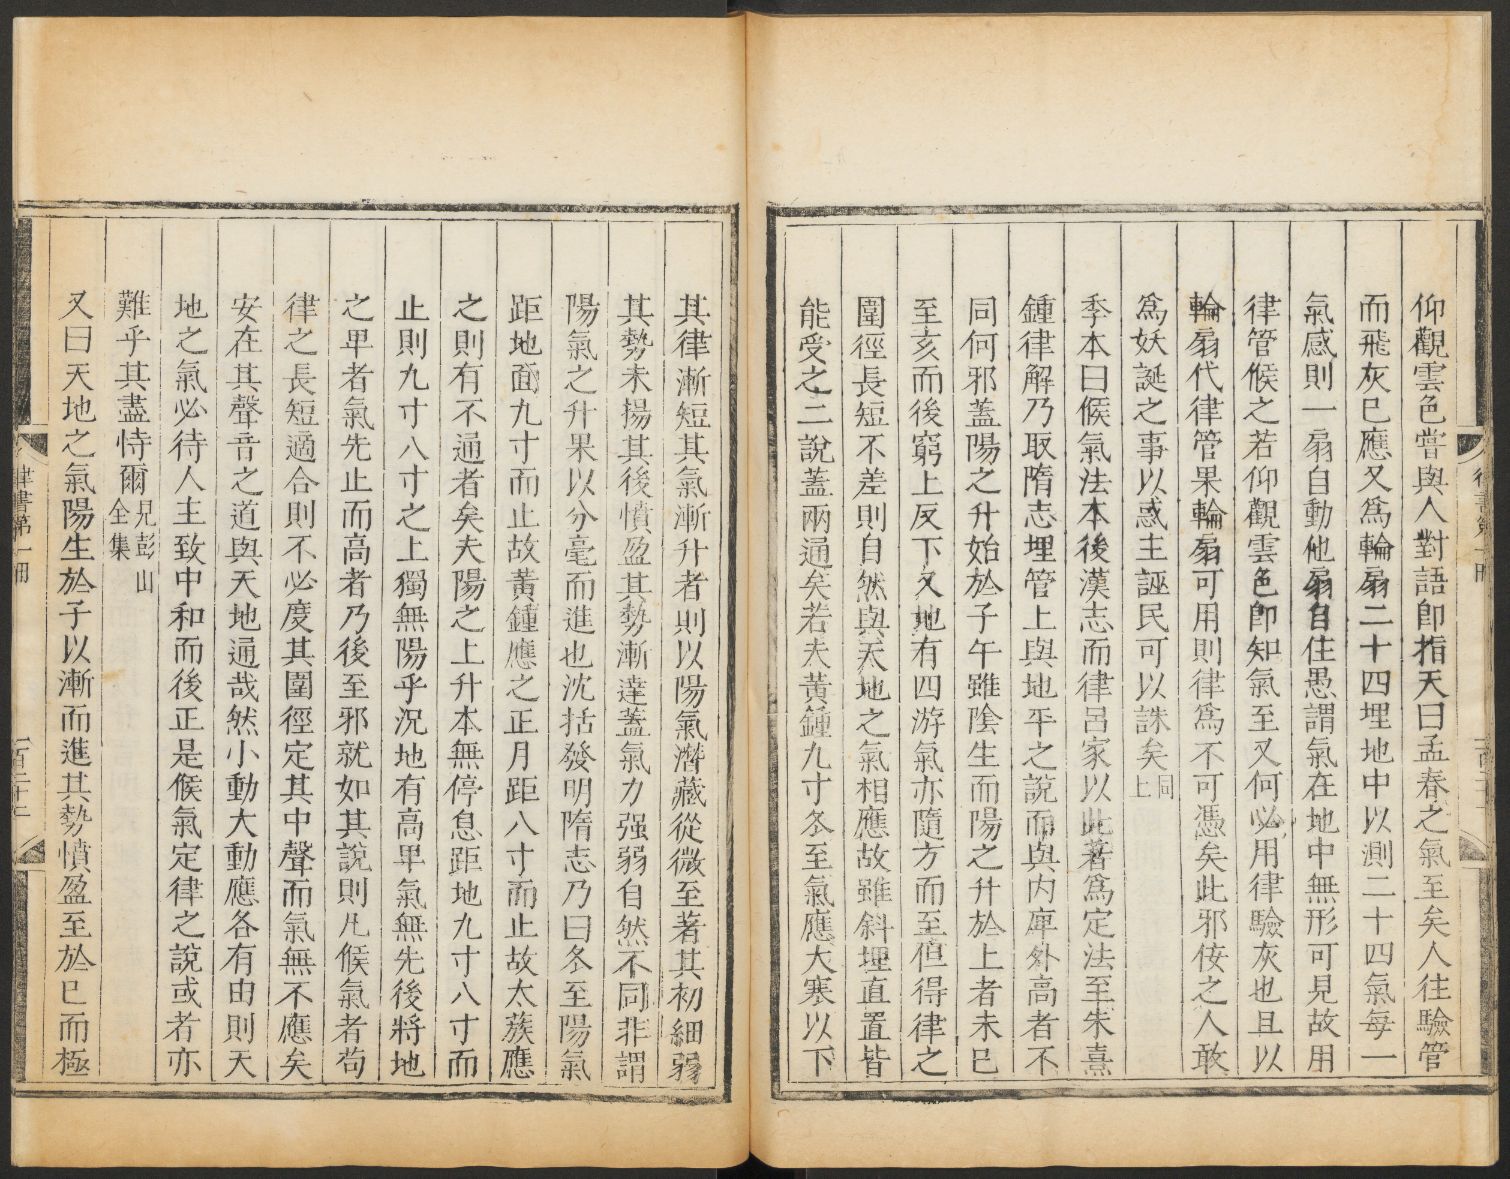 仰觀雲色嘗與人對語卽指天曰孟春之氣至矣人往驗管
而飛灰已應又爲輪扇二十四埋地中以測二十四氣每一
氣感則一扇自動他扇自住愚謂氣在地中無形可見故用
律管候之若仰觀雲色卽知氣至又何必用律驗灰也且以
輪扇代律管果輪扇可用則律爲不可憑矣此邪侫之人敢
爲妖誕之事以惑主誣民可以誅矣同上
季本曰候氣法本後漢志而律呂家以此著爲定法至朱熹
鍾律解乃取隋志埋管上與地平之說而與内庳外高者不
同何邪蓋陽之升始於子午雖陰生而陽之升於上者未已
至亥而後窮上反下又地有四游氣亦隨方而至但得律之
圍徑長短不差則自然與天地之氣相應故雖斜埋直置皆
能受之二說蓋兩通矣若夫黃鍾九寸冬至氣應大寒以下
其律漸短其氣漸升者則以陽氣潛藏從微至著其初細弱
其勢未揚其後憤盈其勢漸達蓋氣力强弱自然不同非謂
陽氣之升果以分毫而進也沈括發明隋志乃曰冬至陽氣
距地面九寸而止故黃鍾應之正月距八寸而止故太蔟應
之則有不通者矣夫陽之上升本無停息距地九寸八寸而
止則九寸八寸之上獨無陽乎況地有高卑氣無先後將地
之卑者氣先止而高者乃後至邪就如其說則凡候氣者苟
律之長短適合則不必度其圍徑定其中聲而氣無不應矣
安在其聲音之道與天地通哉然小動大動應各有由則天
地之氣必待人主致中和而後正是候氣定律之說或者亦
難乎其盡恃爾見彭山全集
又曰天地之氣陽生於子以漸而進其勢憤盈至於巳而極
律書第一冊
一百二十二